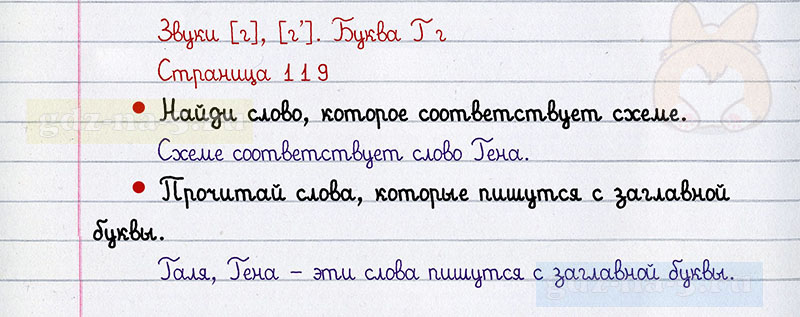 Звуки [г], [г’]. Буква Г г
Страница 119
• Найди слово, которое соответствует схеме.
Схеме соответствует слово Гена.
• Прочитай слова, которые пишутся с заглавной
буквы.
Галя, Гена – эти слова пишутся с заглавной буквы.